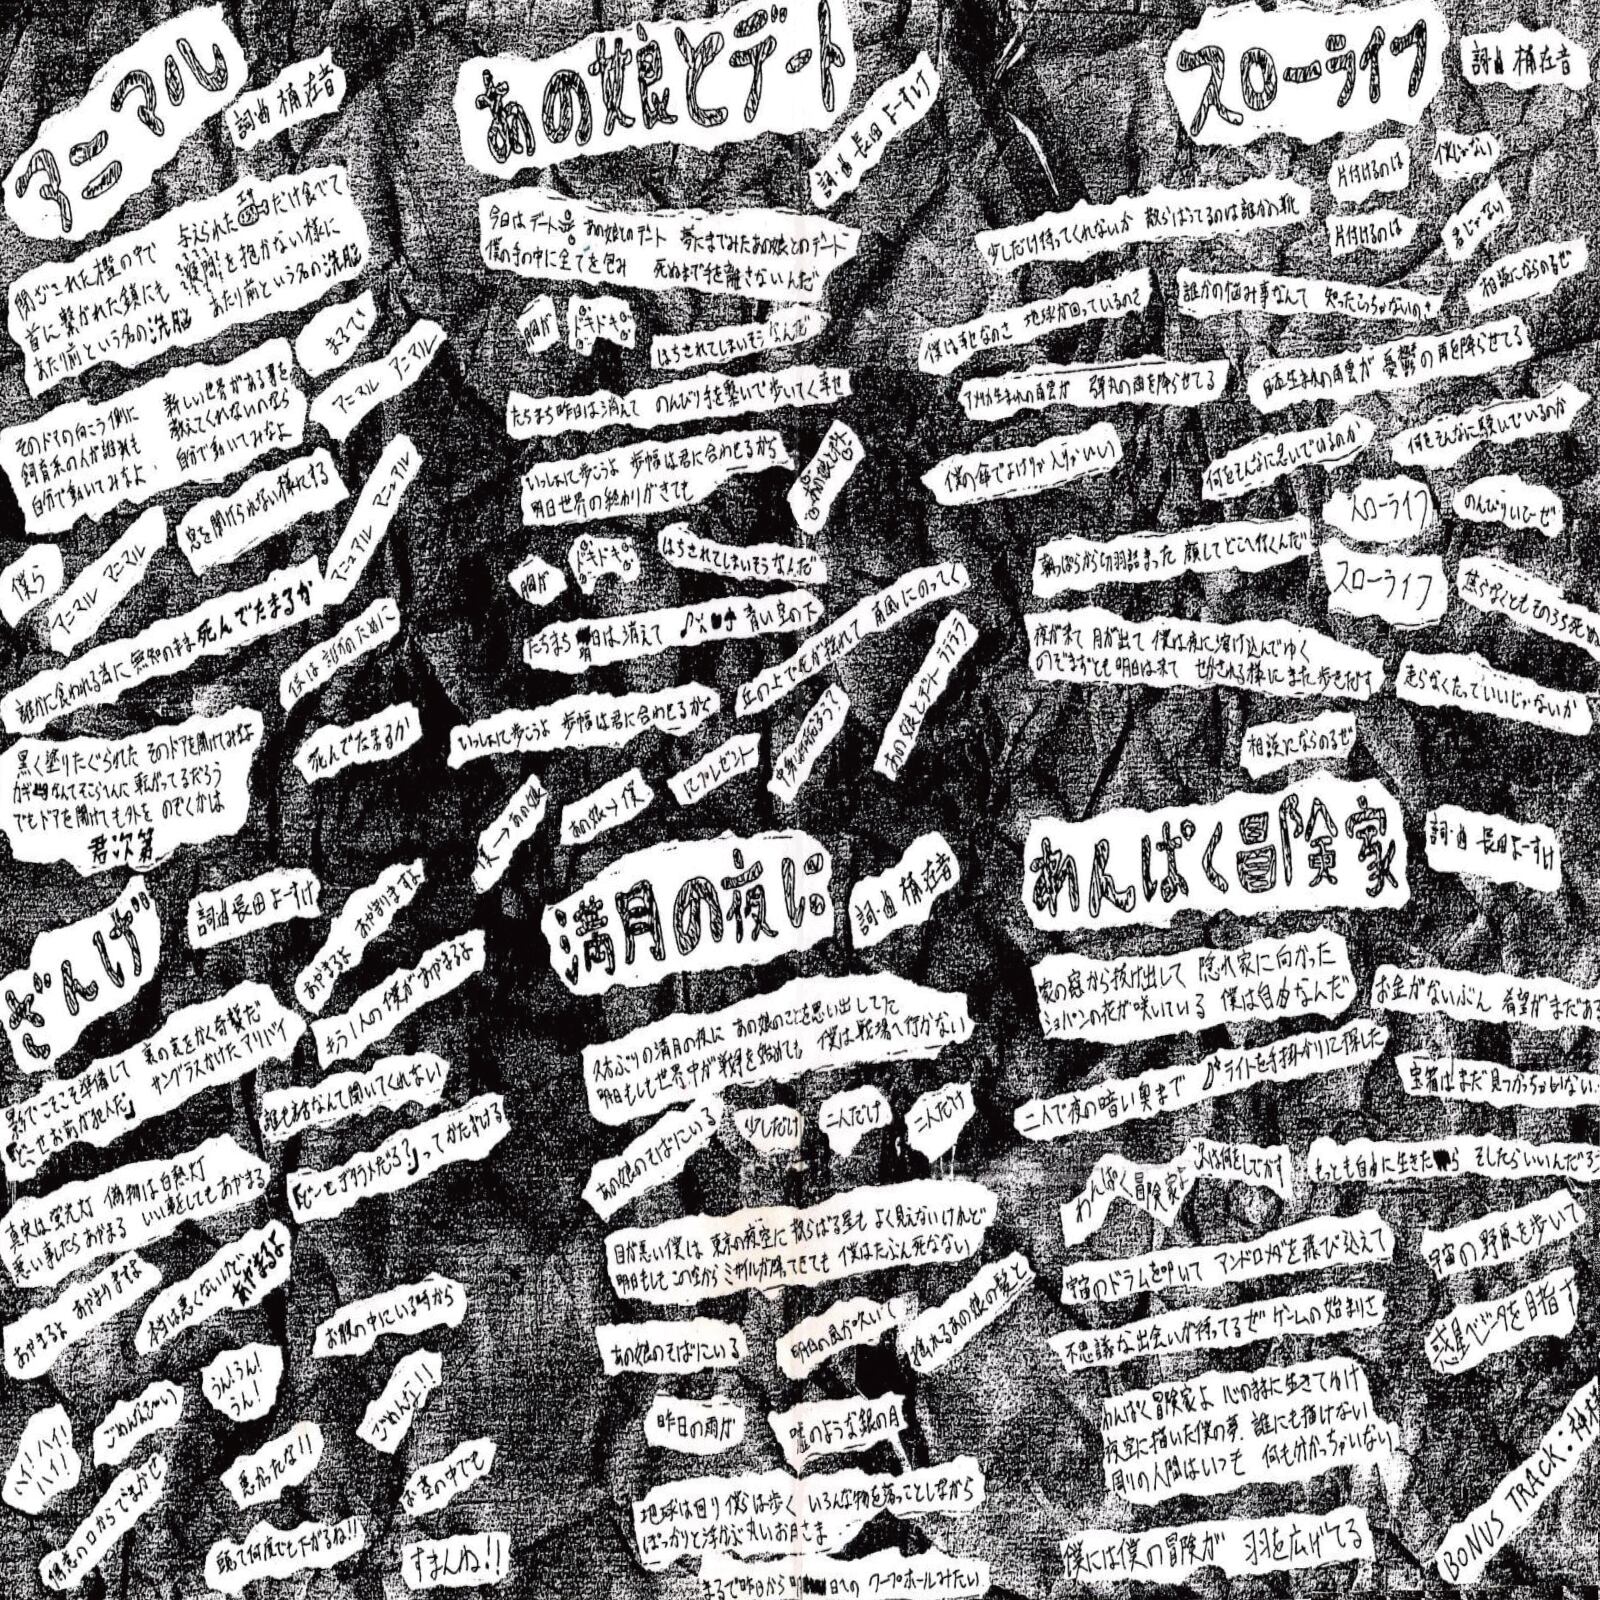 アニマル
詞曲 楠在音
閉ざされた檻の中で 与えられた だけ食べて
首に繋がれた鎖にも 疑問を抱かない様に
あたり前という名の洗脳 あたり前という名の洗脳
そのドアの向こう側に 新しい世界がある事を
飼育系の人が誰も 教えてくれないのなら
自分で動いてみなよ 自分で動いてみなよ
まるで
アニマル アニマル
僕ら
アニマル アニマル
窓を開けられない様にする
アニュアル アニュアル
誰かに食われる為に 無知のまま 死んでたまるか
僕は 誰かのために
死んでたまるか
黒く塗りたぐられた そのドアを開けてみなよ
カギなんてそこらへんに 転がってるだろう
でもドアを開けても外を のぞくかは
君次第
ざんげ
詞曲 長田よーすけ
あやまりますよ
あやまるよ
もう1人の僕があやまるよ
影でこそこそ準備して 裏の裏をかく奇襲だ
「どーせお前が犯人だ」 サングラスかけたアリバイ
誰も話なんて聞いてくれない
「どーせデタラメだろ!」ってかたずける
真実は蛍光灯 偽物は白熱灯
悪い事したらあやまる いい事をしてもあやまる
あやまるよ あやまりますよ
村は悪くないけどあやまるよ
お腹の中にいる時から
ハイ!ハイ!
ハイ!ハイ!
ごめんなさい
うん!うん!
うん!
ごめんな!!
得意の口からでまかせ
悪かったな!!
お墓の中でも
頭って何度でも下がるね!!
すまんね!!
あの娘とデート
詞曲 長田よーすけ
今日はデート あの娘とのデート 夢にまでみたあの娘とのデート
僕の手の中に全てを包み 死ぬまで手を離さないんだ
胸が
ドキドキ
はちきれてしまいそうなんだ
たちまち昨日は消えて のんびり手を繋いで歩いてく幸せ
いっしょに歩こうよ 歩幅は君に合わせるから
明日世界の終わりがきても
胸が
ドキドキ
はちきれてしまいそうなんだ
たちまち 日は消えて 青い空の下
丘の上で花が揺れて 南風にのってく
いっしょに歩こうよ 歩幅は君に合わせるから
僕→あの娘
あの娘→僕
にプレゼント
中身は何だろう?
あの娘とデート ラララ
満月の夜に
詞曲 楠在音
久方ぶりの満月の夜に あの娘のことを思い出してた
明日もしも世界中が戦争を始めても 僕は戦場へ行かない
あの娘のそばにいる
少しだけ
二人だけ
二人だけ
目が悪い僕は 東京の夜空に 散らばる星も よく見えないけれど
明日もしこの空から ミサイルが降ってきても 僕はたぶん死なない
あの娘のそばにいる
明日の風が吹いて
揺れるあの娘の髪と
昨日の雨が
嘘のような銀の月
地球は回り 僕らは歩く いろんな物を落っことしながら
ぽっかりと浮かぶ丸いお月さま
まるで昨日から 明日への ワープホールみたい
スローライフ
詞曲 楠在音
少しだけ待ってくれないか 散らばってるのは誰かの靴
片付けるのは
僕じゃない
片付けるのは
君じゃない
僕は幸せなのさ 地球が回っているのさ
誰かの悩み事なんて 知ったこっちゃないのさ
相談にならのるぜ
アメリカ生まれの雨雲が 弾丸の雨を降らせてる
日本生まれの雨雲が 憂鬱の雨を降らせてる
僕の傘でよければ入りなさい
何をそんなに急いでいるのか
何をそんなに騒いでいるのか
スローライフ
のんびりいこーぜ
朝っぱらから切羽詰まった 顔してどこへ行くんだ
スローライフ
焦らなくともそのうち死ぬ
夜が来て 月が出て 僕は夜に溶け込んでゆく
のぞまずとも 明日は来て せかされる様に また歩きだす
走らなくたっていいじゃないか
相談にならのるぜ
わんぱく冒険家
詞曲 長田よーすけ
家の窓から抜け出して 隠れ家に向かった
ショパンの花が咲いている 僕は自由なんだ
お金がないぶん 希望がまだある
二人で夜の暗い奥まで ライトを手掛かりに探した
宝箱はまだ見つかっちゃいない
わんぱく冒険家よ
次は何をしでかす
もっとも自由に生きた ら そしたらいいんだろ
宇宙のドラムを叩いて アンドロメダを飛び込えて
宇宙の野原を歩いて
不思議な出会いが待ってるぜ ゲームの始まりさ
惑星ベジータを目指す
わんぱく冒険家よ 心のままに生きてゆけ
夜空に描いた僕の夢 誰にも描けない
周りの人間はいつも 何も分かっちゃいない
僕には僕の冒険が 羽を広げてる
BONUS TRACK:神様